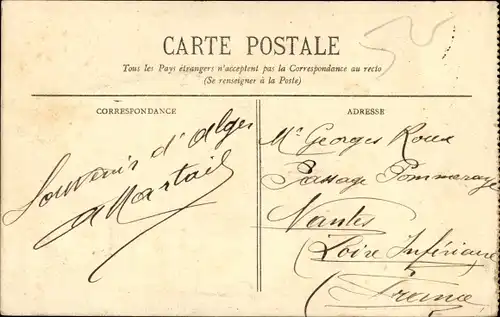 CARTE POSTALE
Tous les Pays étrangers n'acceptent pas la Correspondance au recto
(Se renseigner à la Poste)
CORRESPONDANCE
ADRESSE
Souvenir d'Alger
Mr Georges Roux
Passage Pommeraye
Nantes
(Loire Inférieure
(France